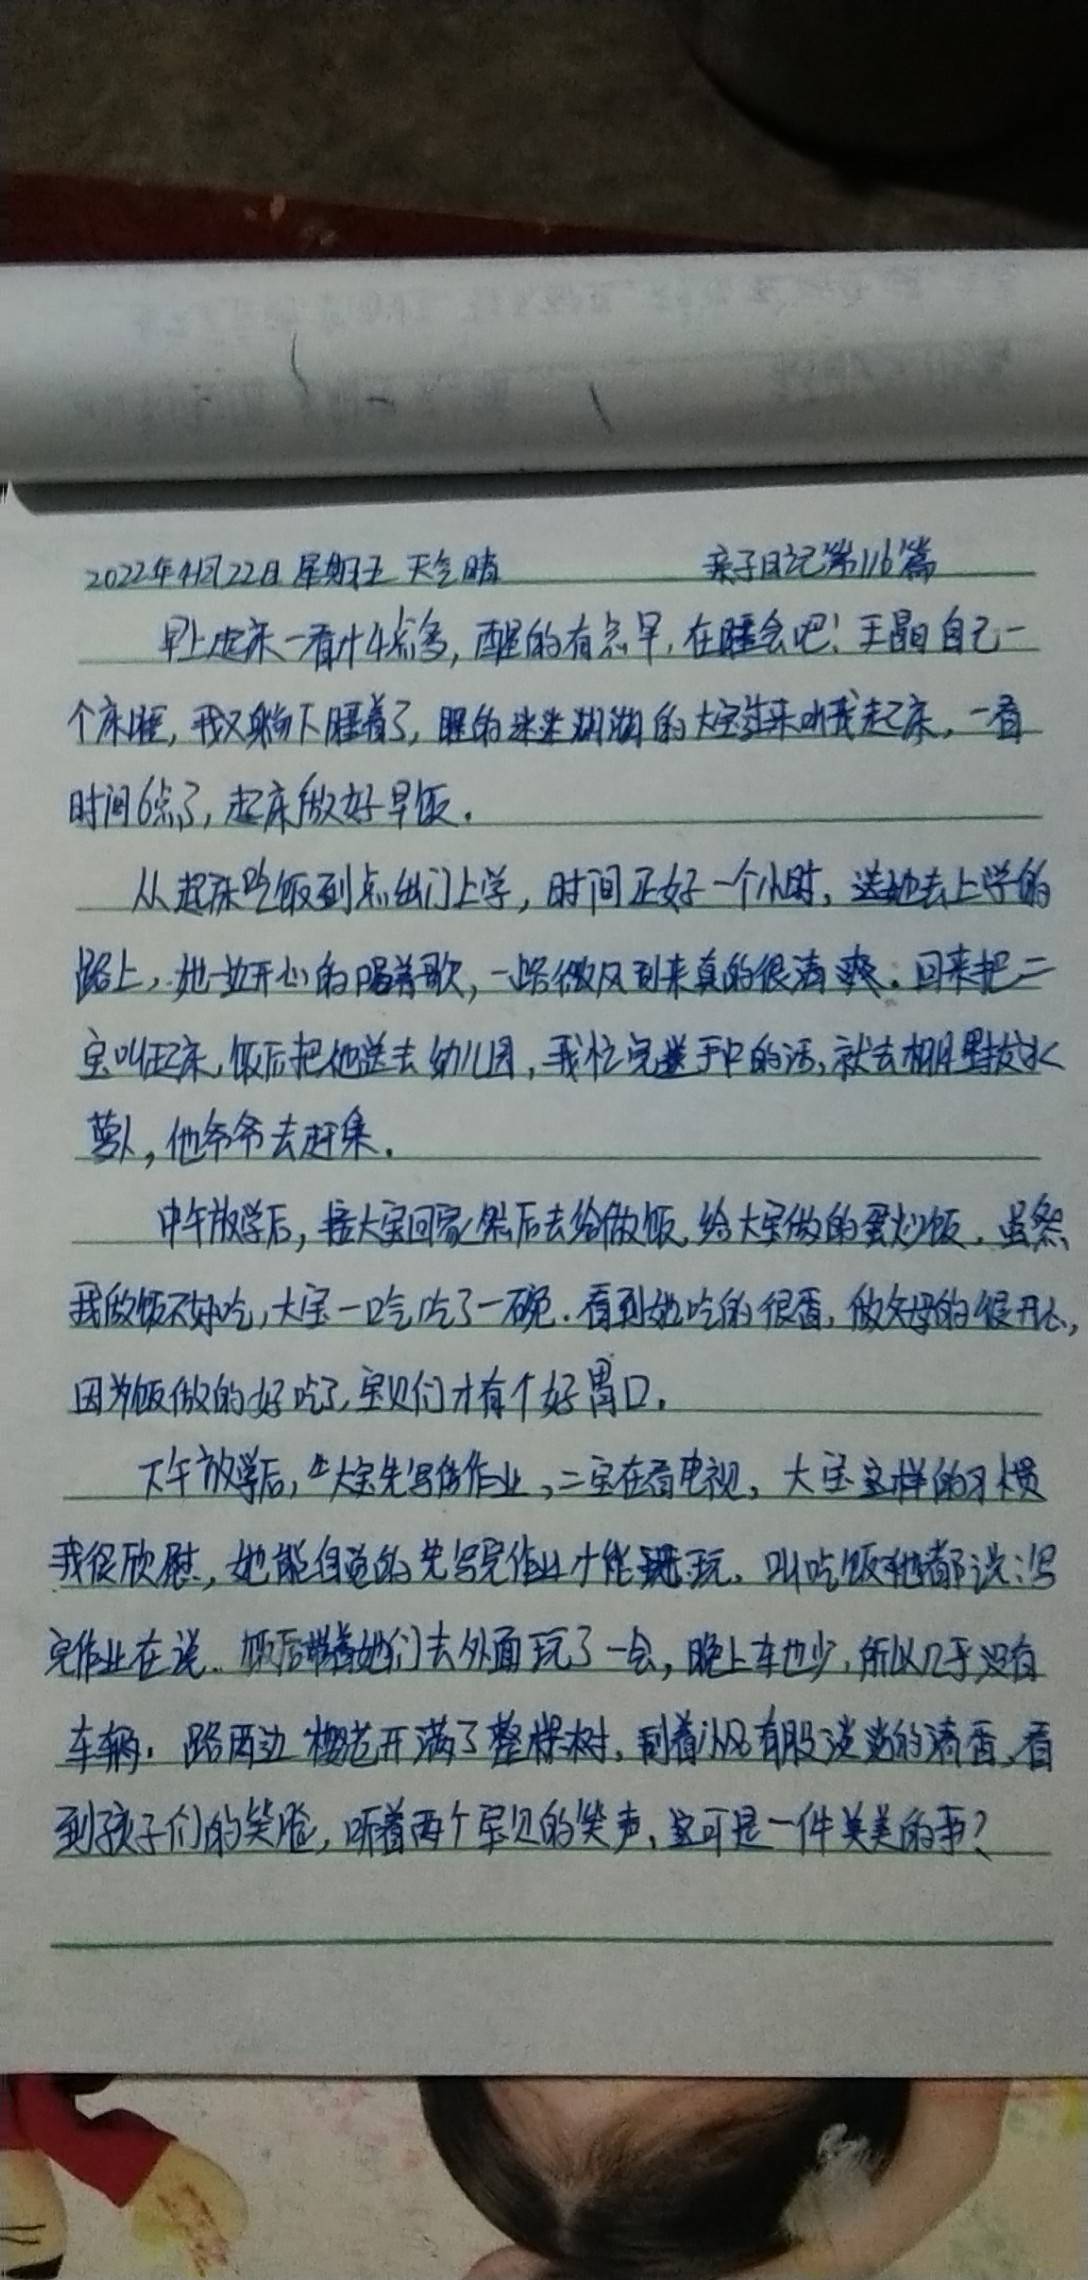 2022年4月22日 星期五 天气晴 亲子日记第116篇
早上起床一看才4点多,醒的有点早,在睡会吧!王晶自己一
个床睡,我又躺下睡着了,睡的迷迷湖湖的大宝进来叫我起床,一看
时间6点了,起床做好早饭.
从起床吃饭到点出门上学,时间正好一个小时,送她去上学的
路上,她一边开心的唱着歌,一路微风到来真的很清爽.回来把二
宝叫起床,饭后把他送去幼儿园,我忙完手中的活,就去棚里拔水
萝卜,他爷爷去赶集.
中午放学后,接大宝回家然后去给做饭,给大宝做的蛋炒饭,虽然
我做饭不好吃,大宝一口气吃了一碗.看到她吃的很香,做父母的很开心,
因为饭做的好吃了,宝贝们才有个好胃口.
下午放学后,大宝先写作业,二宝在看电视,大宝这样的习惯
我很欣慰,她能自觉的先写完作业才能玩.叫吃饭她都说:写
完作业在说.饭后带着她们去外面玩了一会,晚上车也少,所以几乎没有
车辆.路两边樱花开满了整棵树,刮着小风有股淡淡的清香,看
到孩子们的笑脸,听着两个宝贝的笑声,这可是一件美美的事?